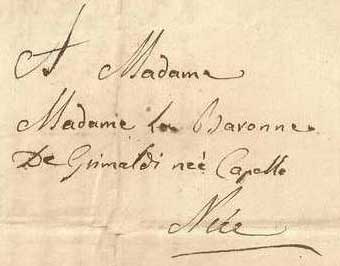 A Madame
Madame la Baronne
De Grimaldi neè Capello
Nice